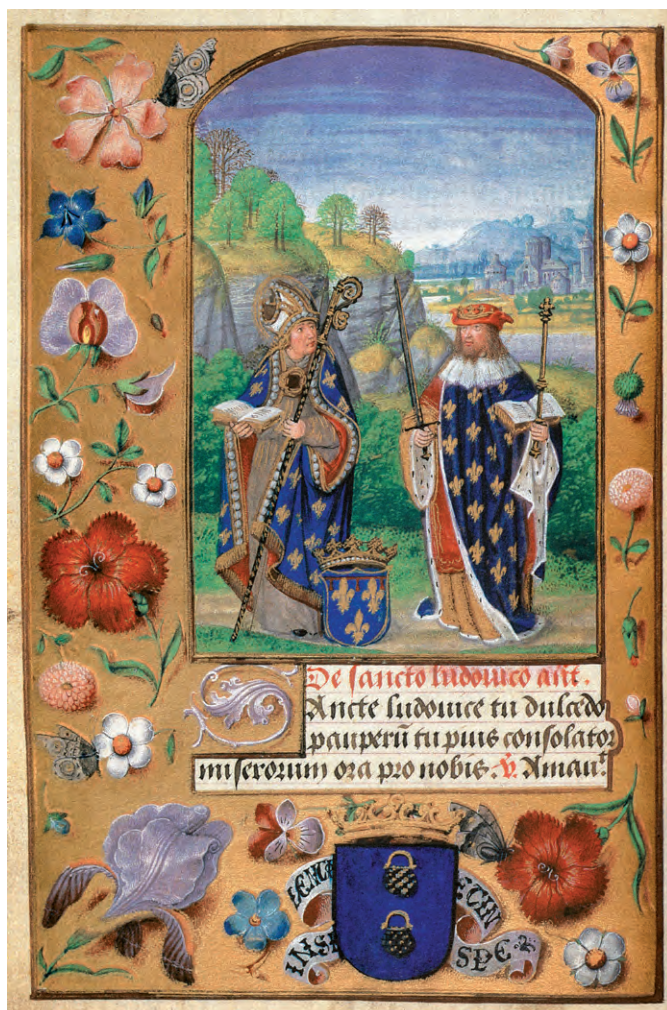 De sancto ludouico ant.
Ancte ludouice tu dulcedo
pauperū tu pius consolator
miserorum ora pro nobis. V. Amauͭ.
IN SPE